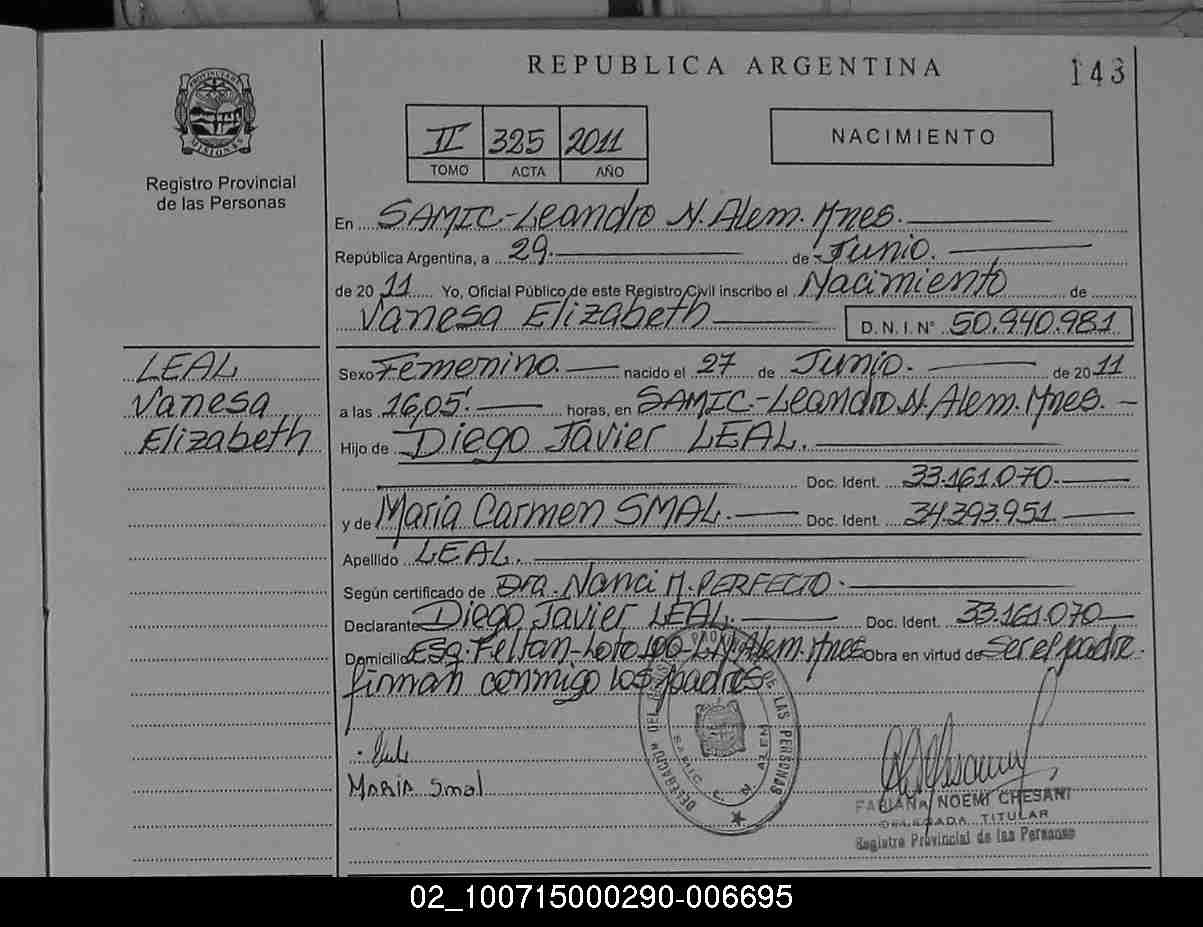 REPUBLICA ARGENTINA
143
PROVINCIA DE
MISIONES
Registro Provincial
de las Personas
II 325 2011
TOMO ACTA AÑO
NACIMIENTO
En SAMIC.-Leandro N. Alem. Mnes.
República Argentina, a 29. de Junio.
de 20 11 Yo, Oficial Público de este Registro Civil inscribo el Nacimiento de
Vanesa Elizabeth D.N.I. N° 50.940.981
LEAL
Vanesa
Elizabeth
Sexo Femenino. nacido el 27 de Junio. de 20 11
a las 16,05'. horas, en SAMIC.-Leandro N. Alem. Mnes. -
Hijo de Diego Javier LEAL.
Doc. Ident. 33.161.070.
y de Maria Carmen SMAL. Doc. Ident. 34.393.951.
Apellido LEAL.
Según certificado de Dra. Nanci M. PERFECTO.
Declarante Diego Javier LEAL. Doc. Ident. 33.161.070
Domicilio Esq. Feltan-Lote 100 L.N. Alem. Mnes Obra en virtud de Ser el padre.
firman conmigo los padres
MARIA Smal
DELEGACION DEL REGISTRO PROVINCIAL DE LAS PERSONAS
SAMIC L. N. ALEM
FABIANA NOEMI CHESANI
DELEGADA TITULAR
Registro Provincial de las Personas
02_100715000290-006695